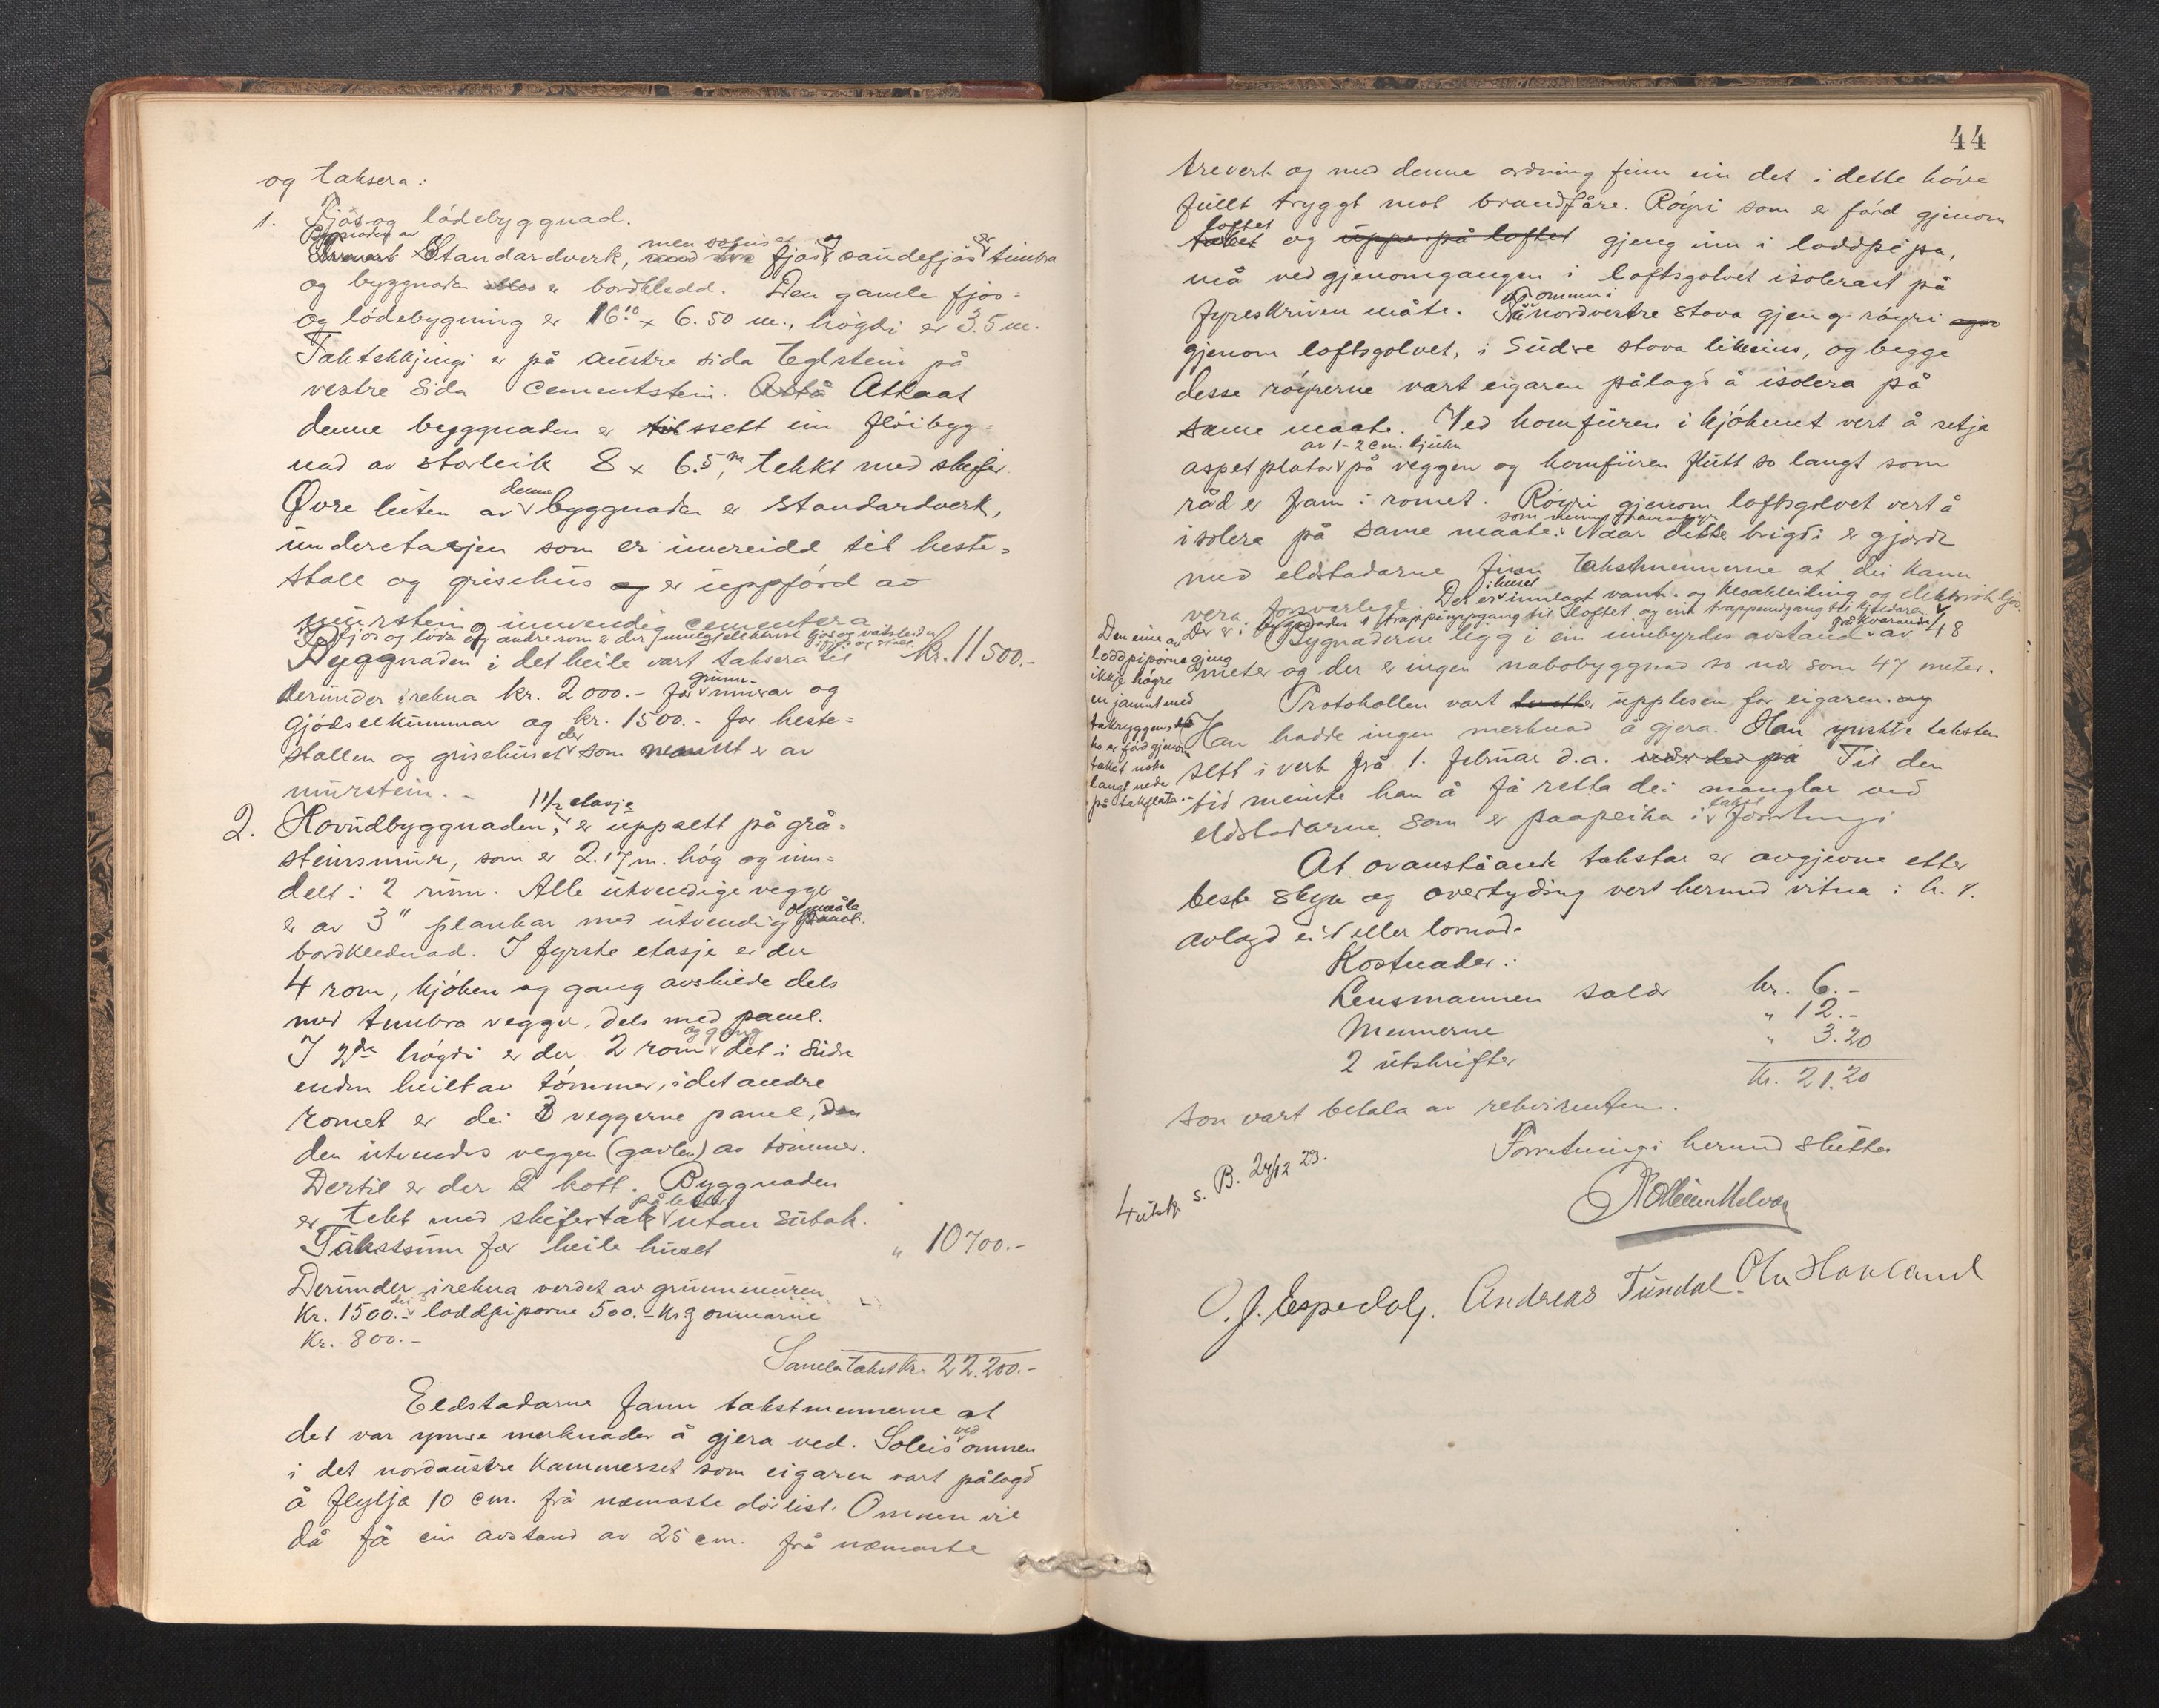 og taksera:
1. Fjös og lödebyggnad.
Bygnaden av
Standardverk, men fjös og saudefjös er timbra
og byggnaden er bordkledd. Den gamle fjös-
og lödebygning er 16.10 x 6.50 m., högdi er 3.5 m.
Taktekkjingi er på austre sida teglstein på
vestre sida cementstein. Attaat
denne byggnaden er sett ein flöibygg-
nad av storleik 8 x 6.5 m, tekkt med skifer.
Øvre luten av denne byggnaden er standardverk,
underetasjen som er innreidd til heste-
stall og grisehus er uppförd av
murstein og innvendig cementera
I fjös og löda og andre rom er der innlagt elektrisk ljos og vatsleidn
Byggnaden i det heile vart taksera til kr. 11500.-
derunder irekna kr. 2000.- for grunn-murar og
gjödselkummar og kr. 1500.- for heste-
stallen og grisehuset der som nemnt er av
murstein. -
2. Hovudbyggnaden, 1 1/2 etasje er uppsett på grå-
steinsmur, som er 2.17 m. hög og inn-
delt i 2 rum. Alle utvendige vegger
er av 3" plankar med utvendig og måla
bordklednad. I fyrste etasje er der
4 rom, kjöken og gang avskilde dels
med timbra vegger, dels med panel.
I 2dre högdi er der 2 rom og gang det i södre
enden heilt av tömmer, i det andre
romet er dei 3 veggerne panel,
den utvendes veggen (gavlen) av tömmer.
Dertil er der 2 kott. Byggnaden
er tekt med skifertak på lekter utan sutak.
Takstsum for heile huset " 10700.-
Derunder irekna verdet av grunnmuren
Kr. 1500.- dei 2 loddpiporne 500.- Kr. og omnarne
Kr. 800.-
Samla takst kr. 22.200.-
Eldstadarne fann takstmennerne at
det var ymse merknader å gjera ved. Soleis ved omnen
i det nordaustre kammerset som eigaren vart pålagd
å flytja 10 cm. frå næmaste dörlist. Omnen vil
då få ein avstand av 25 cm. frå næmaste
44
treverk og med denne ordning finn ein det i dette höve
fullt trygt mot brandfåre. Röyri som er förd gjenom
loftet og uppe på loftet gjeng inn i loddpipa,
må ved gjenomgangen i loftsgolvet isolerast på
fyreskriven måte. Frå omnen i nordvestre stova gjeng röyri
gjenom loftsgolvet, i södre stova likeeins, og begge
desse röyrerne vart eigaren pålagd å isolera på
same maate. Ved komfüren i kjökenet vert å setja
aspetplator av 1-2 cm. tjukn på veggen og komfüren flutt so langt som
råd er fram i romet. Röyri gjenom loftsgolvet vert å
isolera på same maate som nemnt framanfyre. Naar dette brigdi er gjorde
med eldstadarne finn takstmennerne at dei kann
vera forsvarlege. Der er i huset innlagt vatn- og kloakkleiding og elektrisk ljos.
Der er i byggnaden 1 trappuppgang til loftet og ein trappenedgang til kjellaren.
Bygnaderne ligg i ein innbyrdes avstand frå kvarandre av 48
meter og der er ingen nabobyggnad so nær som 47 meter.
Den eine av
loddpiporne gjeng
ikkje högre
en jamnt med
takryggen,
ho er förd gjenom
taket noko
langt nede
på takflata.-
Protokollen vart upplesen for eigaren.
Han hadde ingen merknad å gjera. Han ynskte taksten
sett i verk frå 1. februar d.a. Til den
tid meinte han å få retta dei manglar ved
eldstadarne som er paapeika i takst forretningi
At ovanståande takstar er avgjevne etter
beste skyn og overtyding vert hermed vitna i h. t.
avlagd eid eller lovnad.
Kostnader:
Lensmannen salær kr. 6.-
Mennerne " 12.-
2 utskrifter " 3.20
Kr. 21.20
som vart betala av rekvirenten.
Forretningi hermed slutta
4 utskr. s. B. 24/12 23.
O. J. Espedal. Andreas Tundal. Ola Havland